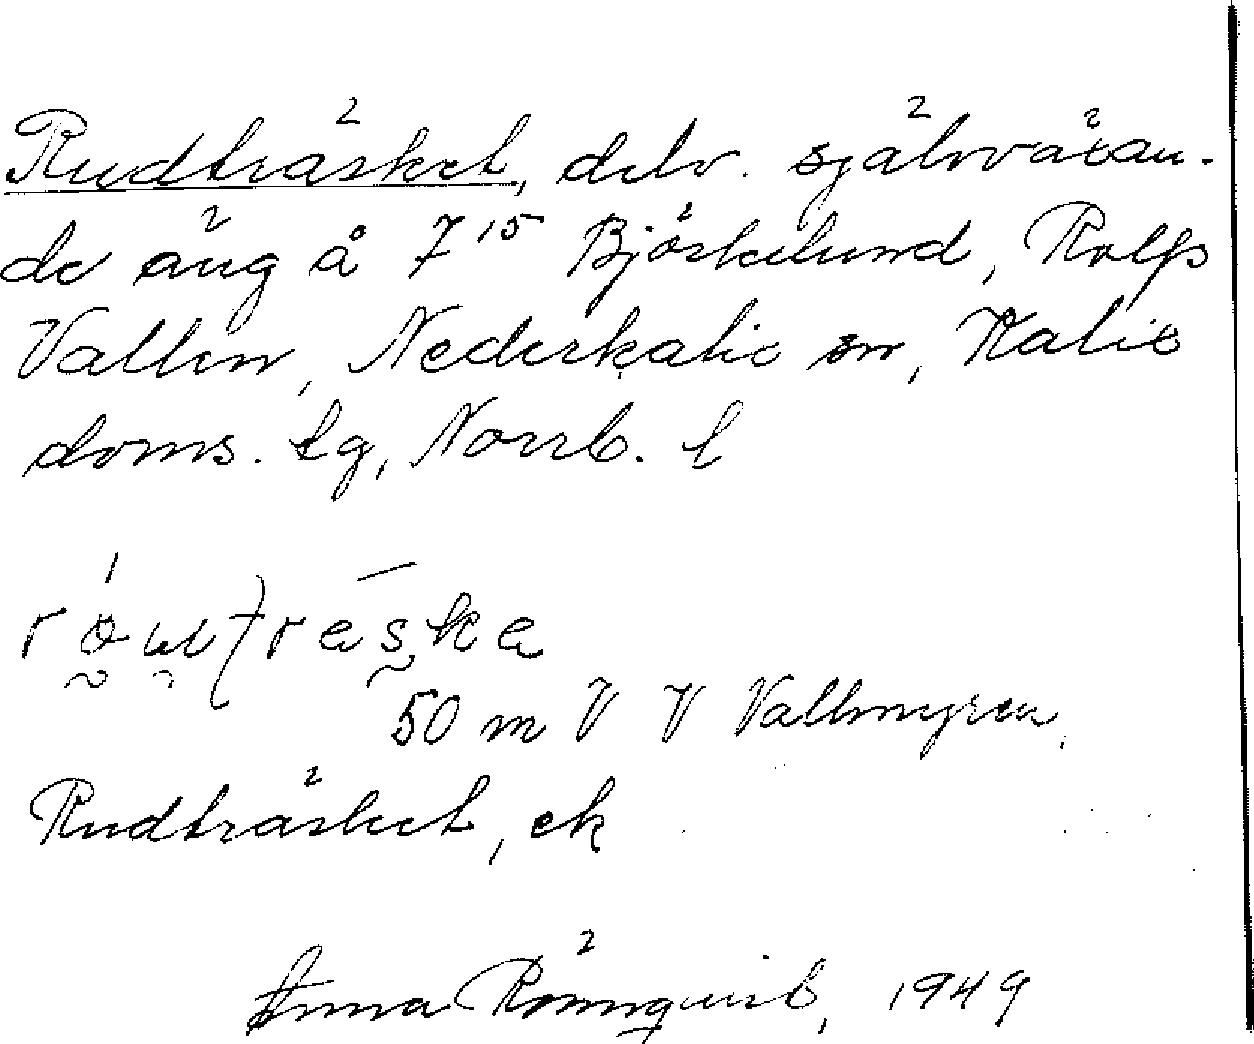 Rudträsket, delv. självväxan-
de äng å 7¹⁵ Björkelund, Rolfs
Vallen, Nederkalix sn, Kalix
doms. lg, Norrb. l
50 m V V Vallmyren,
Rudträsket, ek
Anna Rönnquist, 1949